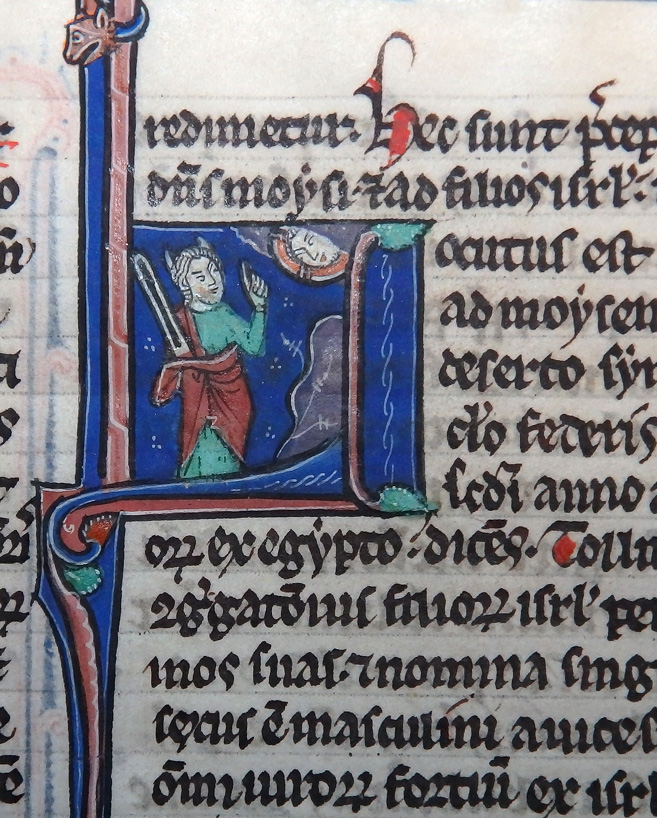 redimetur. hec sunt p̄cep
dn̄s moysi. ⁊ ad filios isrl̓.
Locutus est
ad moysen
deserto syn
clo federis
scdi anno a
oꝝ ex egypto. dicēs. Tolli
ꝯg̓gatōnis filioꝝ isrl̓ per
mos suas. ⁊ nomina sing
secus ē masculini a uices
om̄i uiroꝝ fortiū ex isrl̓